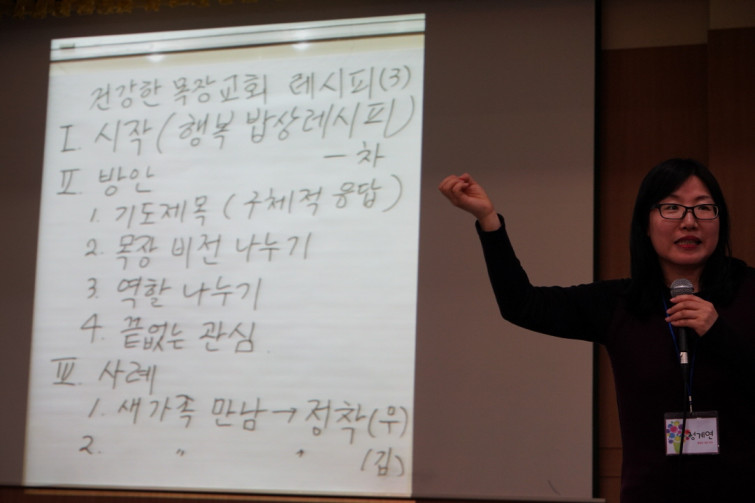 건강한 목장교회 레시피(3)
I. 시작(행복 밥상레시피)
- 차
II. 방안
1. 기도제목 (구체적 응답)
2. 목장 비전 나누기
3. 역할 나누기
4. 끝없는 관심
III. 사례
1. 새가족 만남→정착(우)
2. 〃 〃 (김)
계연